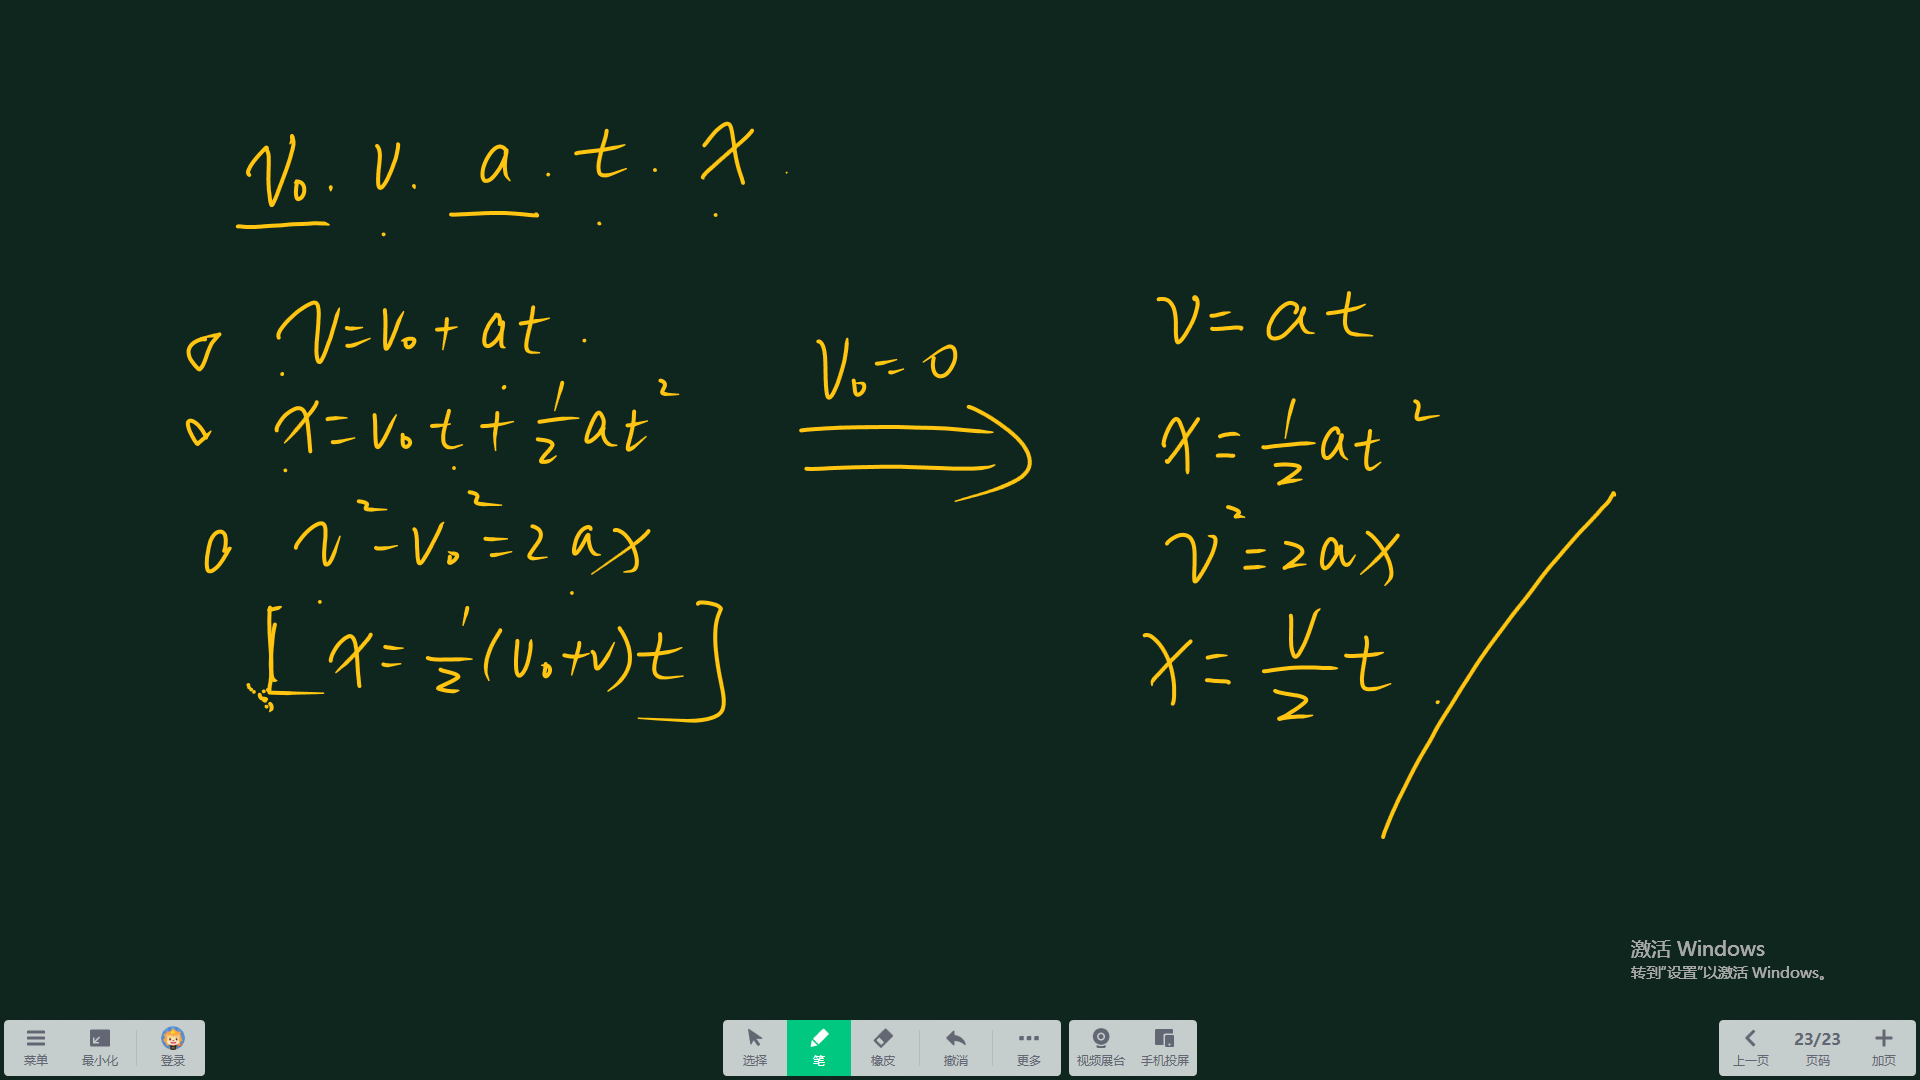 v₀. v. a. t. x.
v=v₀+at.
x=v₀t+½at²
v²-v₀²=2ax
[x=½(v₀+v)t]
v₀=0
v=at
x=½at²
v²=2ax
x=v/2 t.
激活 Windows
转到"设置"以激活 Windows。
菜单 最小化 登录 选择 笔 橡皮 撤消 更多 视频展台 手机投屏 上一页 23/23 页码 加页